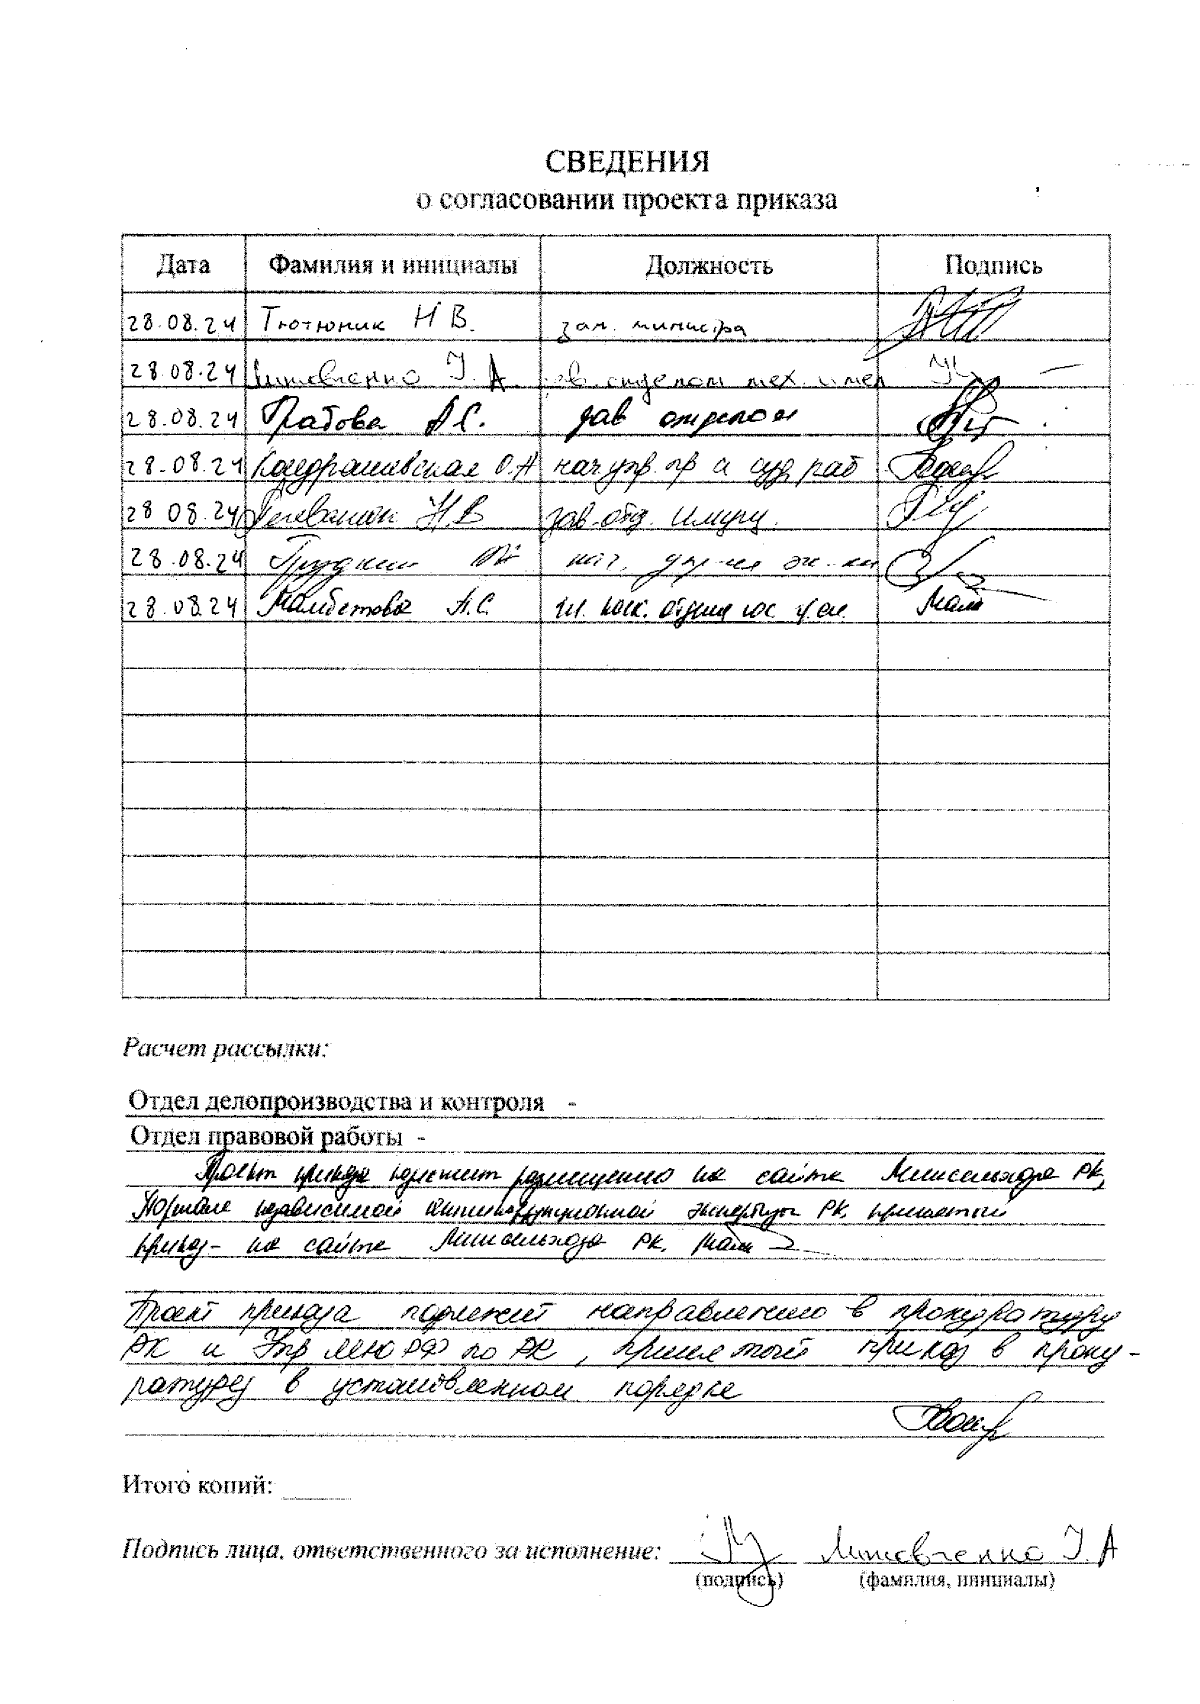 СВЕДЕНИЯ
о согласовании проекта приказа
Дата Фамилия и инициалы Должность Подпись
28.08.24 Тютюник Н В. зам. министра
28.08.24 Литовченко Г. А зав. отделом мех. имел
28.08.24 А.С. зав отделом
28.08.24 Кондрашевская О.А нач упр. пр и суд раб
28 08.24 Н В зав. отд.
28.08.24 нач.
28.08.24 Мамбетова А.С. отдела
Расчет рассылки:
Отдел делопроизводства и контроля -
Отдел правовой работы -
Проект приказа подлежит размещению на сайте Минсельхоза РК,
Портале независимой антикоррупционной экспертизы РК, принятый
приказ - на сайте Минсельхоза РК.
Проект приказа подлежит направлению в прокуратуру
РК и Упр МЮ РФ по РК, принятый приказ в проку-
ратуру в установленном порядке
Итого копий:
Подпись лица, ответственного за исполнение: Литовченко Г. А
(подпись) (фамилия, инициалы)